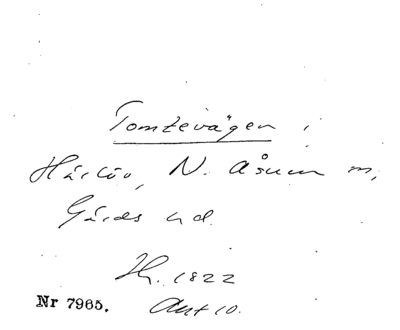 Tomtevägen i
Härlöv, N. Åsum m,
Gärds hd.
Hz. 1822
Nr 7965. Akt 10.